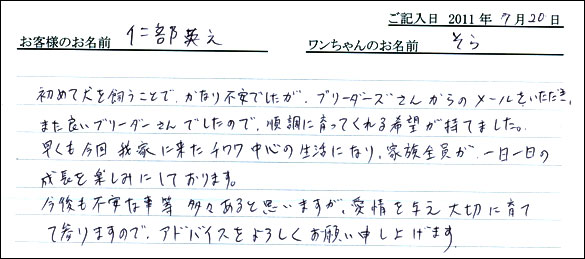 ご記入日 2011年7月20日
お客様のお名前 仁部英之 ワンちゃんのお名前 そら
初めて犬を飼うことで、かなり不安でしたが、ブリーダーズさんからのメールをいただき、
また良いブリーダーさんでしたので、順調に育ってくれる希望が持てました。
早くも今回 我家に来たチワワ中心の生活になり、家族全員が、一日一日の
成長を楽しみにしております。
今後も不安な事等 多々あると思いますが、愛情を与え 大切に育て
て参りますので、アドバイスをよろしくお願い申し上げます